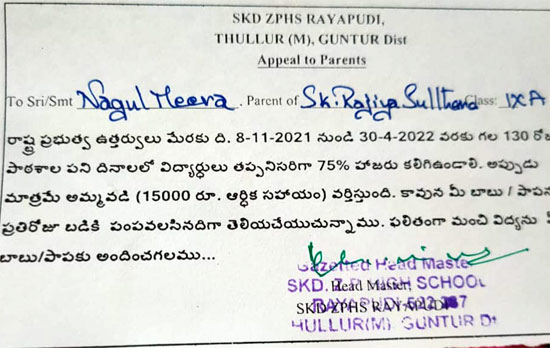 SKD ZPHS RAYAPUDI,
THULLUR (M), GUNTUR Dist
Appeal to Parents
To Sri/Smt Nagul Meera, Parent of Sk. Rajiya Sulthana Class: IX A
రాష్ట్ర ప్రభుత్వ ఉత్తర్వులు మేరకు ది. 8-11-2021 నుండి 30-4-2022 వరకు గల 130 రోజ
పాఠశాల పని దినాలలో విద్యార్ధులు తప్పనిసరిగా 75% హాజరు కలిగిఉండాలి. అప్పుడు
మాత్రమే అమ్మవడి (15000 రూ. ఆర్ధిక సహాయం) వర్తిస్తుంది. కావున మీ బాబు / పాపను
ప్రతిరోజూ బడికి పంపవలసినదిగా తెలియచేయుచున్నాము. ఫలితంగా మంచి విద్యను
బాబు/పాపకు అందించగలము...
Gazetted Head Maste
SKD. Z.P. HIGH SCHOOL
Head Master,
RAYAPUDI-522 237
SKD ZPHS RAYAPUDI
THULLUR(M), GUNTUR Dt